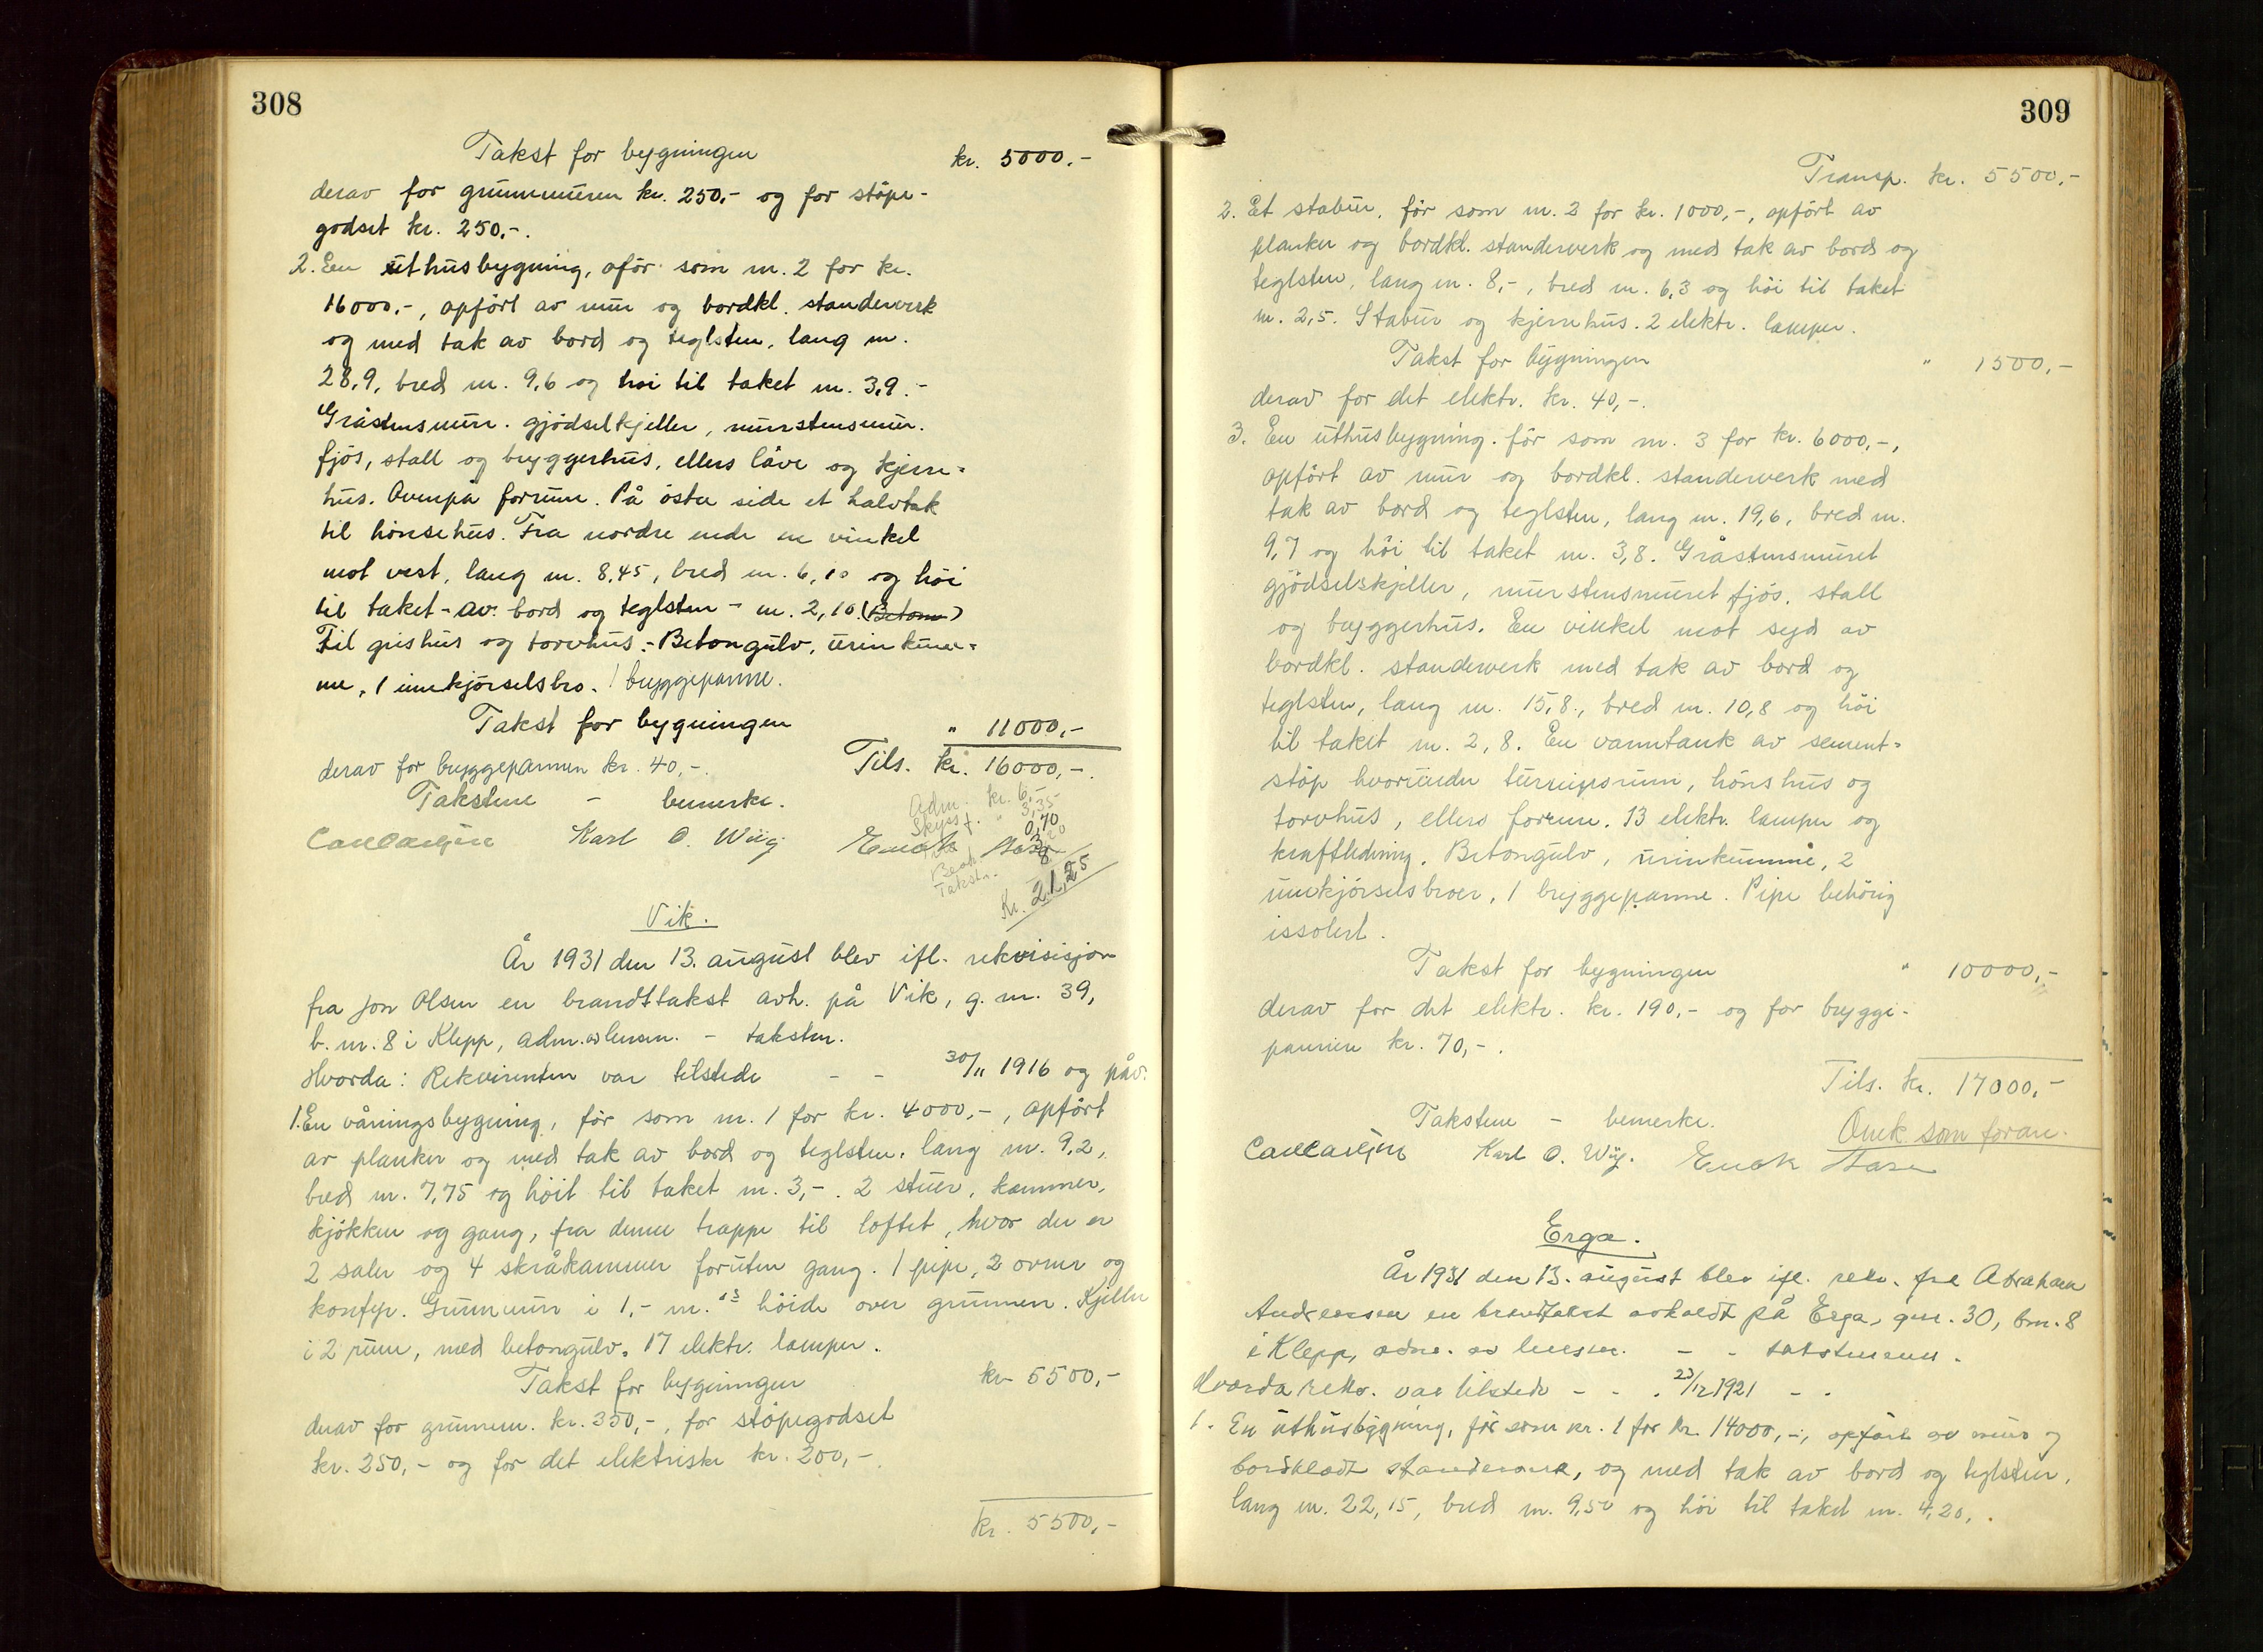 308
Takst for bygningen kr. 5000.-
derav for grunnmuren kr. 250,- og for støpe-
godset kr. 250.-.
2. En uthusbygning, før som nr. 2 for kr.
16000.-, opført av mur og bordkl. standerverk
og med tak av bord og teglsten, lang m.
28,9, bred m. 9,6 og høi til taket m. 3,9.-
Gråstensmur. gjødselkjeller, murstensmur.
fjøs, stall og bryggerhus, ellers låve og kjerre-
hus. Ovenpå forrum. På østre side et halvtak
til hønsehus. Fra nordre ende en vinkel
mot vest, lang m. 8,45, bred m. 6,10 og høi
til taket - av bord og teglsten - m. 2,10 (Betonn)
Til grishus og torvhus.- Betongulv, urinkum-
me, 1 innkjørselsbro. 1 bryggepanne.
Takst for bygningen " 11000,-
derav for bryggepannen kr. 40,-. Tils. kr. 16000,-.
Takstene - bemerke.
Adm. kr. 6,-
Skyss f. " 3,35
0,70
Takstn.
Kr. 21,25
Karl O. Wiig Enok
Vik.
År 1931 den 13. august blev ifl. rekvisisjon
fra Jon Olsen en brandttakst avh. på Vik, g. nr. 39,
b. nr. 8 i Klepp, adm. av lensm. - takstm.
Hvorda: Rekvirenten var tilstede - - 30/11 1916 og påv.
1. En våningsbygning, før som nr. 1 for kr. 4000,-, opført
av planker og med tak av bord og teglsten, lang m. 9,2,
bred m. 7,75 og høit til taket m. 3,-. 2 stuer, kammer,
kjøkken og gang, fra denne trappe til loftet, hvor der er
2 saler og 4 skråkammer foruten gang. 1 pipe, 2 ovner og
komfyr. Grunnmur i 1,- m.s høide over grunnen. Kjeller
i 2 rum, med betongulv. 17 elektr. lamper.
Takst for bygningen kr. 5500,-
derav for grunnm. kr. 350,-, for støpegodset
kr. 250,- og for det elektriske kr. 200,-.
kr. 5500,-
309
Transp. kr. 5500,-
2. Et stabur, før som nr. 2 for kr. 1000,-, opført av
planker og bordkl. standerverk og med tak av bord og
teglsten, lang m. 8,-, bred m. 6,3 og høi til taket
m. 2,5. Stabur og kjernhus. 2 elektr. lamper.
Takst for bygningen " 1500,-
derav for det elektr. kr. 40,-.
3. En uthusbygning. før som nr. 3 for kr. 6000,-,
opført av mur og bordkl. standerverk med
tak av bord og teglsten, lang m. 19,6, bred m.
9,7 og høi til taket m. 3,8. Gråstensmuret
gjødselskjeller, murstensmuret fjøs, stall
og bryggerhus. En vinkel mot syd av
bordkl. standerverk med tak av bord og
teglsten, lang m. 15,8., bred m. 10,8 og høi
til taket m. 2,8. En vanntank av sement-
støp hvorunder turnipsrum, hønshus og
torvhus, ellers forrum. 13 elektr. lamper og
kraftledning. Betongulv, urinkumme, 2
innkjørselsbroer, 1 bryggepanne. Pipe behörig
issolert.
Takst for bygningen " 10000,-
derav for det elektr. kr. 190,- og for brygge-
pannen kr. 70,-.
Tils. kr. 17000,-
Takstene - bemerke. Omk. som foran.
Karl O. Wiig. Enok
Erga.
År 1931 den 13. august blev ifl. rekv. fra Abraham
Andreassen en brandtakst avholdt på Erga, gnr. 30, bnr. 8
i Klepp, adm. av lensm. - - takstmenn.
Hvorda rekv. var tilstede - - . 23/12 1921 - -
1. En uthusbygning, før som nr. 1 for kr. 14000,-, opført av mur og
bordklædt standerverk, og med tak av bord og teglsten,
lang m. 22,15, bred m. 9,50 og høi til taket m. 4,20,.